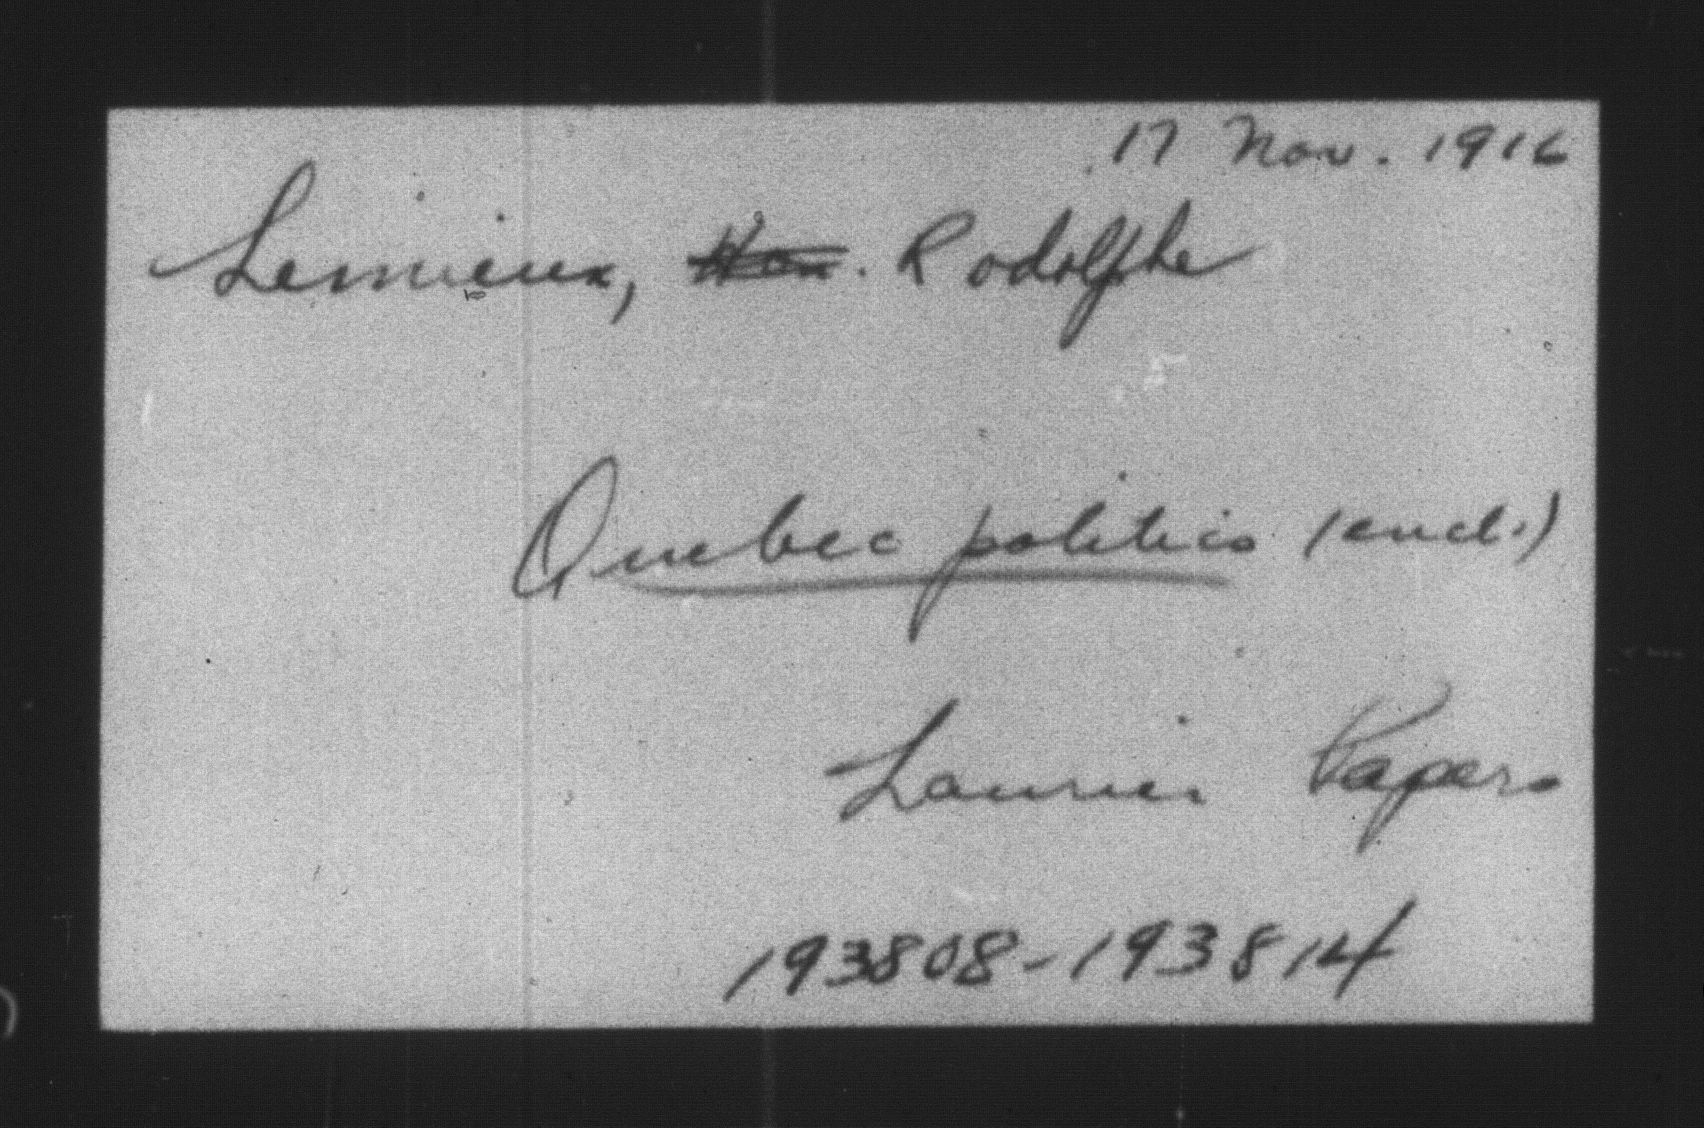 17 Nov. 1916
Lemieux, Hon. Rodolphe
Quebec politics (encl.)
Laurier Papers
193808-193814